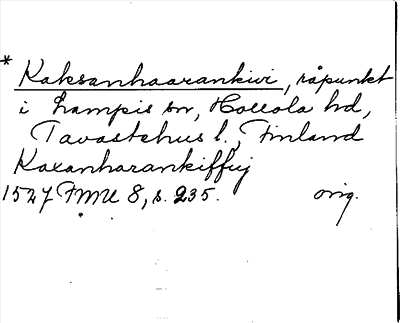 * Kaksanhaarankivi, råpunkt
i Lampis sn, Hollola hd,
Tavastehus l., Finland
Kaxanharankiffuj
1527 FMU 8, s. 235. orig.